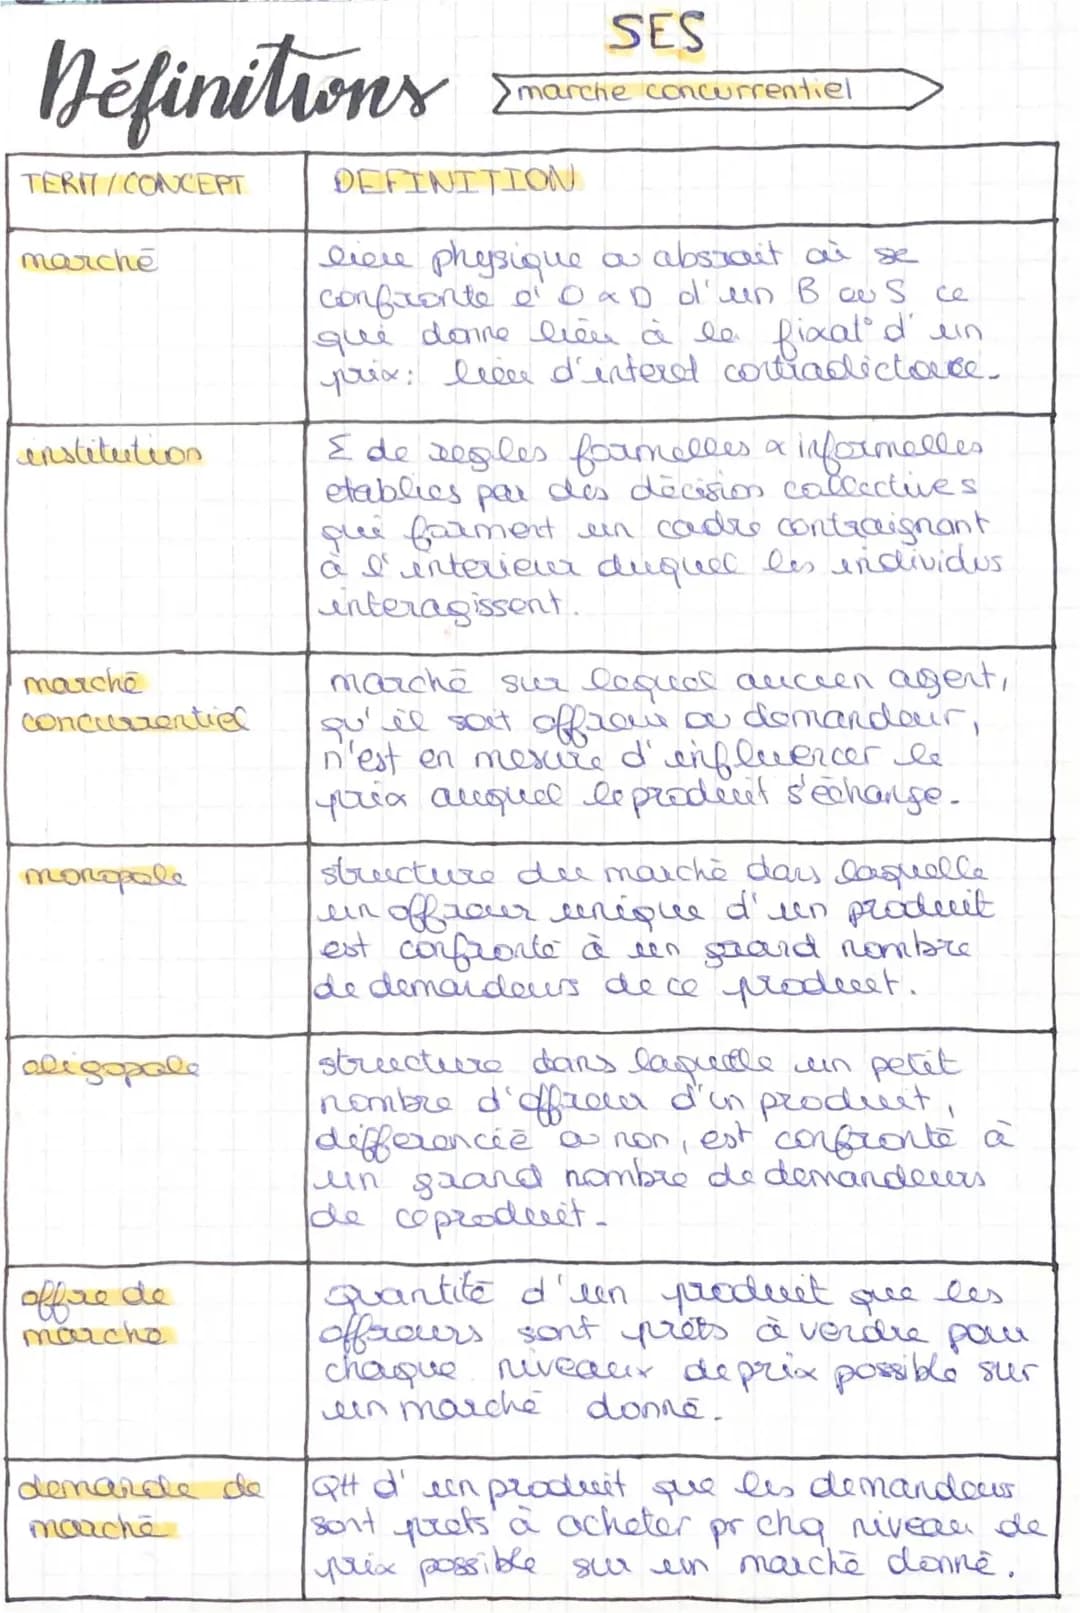 SES
Définitions
marche concurrentiel
TERM/CONCEPT
DEFINITION
marché
lieu physique ou absrait où se
confronte l'O & D d'un B ou S ce
qui donne lieu à la fixat° d'un
prix: lieu d'interet contradictoire.
institution
Σ de regles formelles & informelles
etablies par des décision collectives
qui forment un cadre contraignant
à l'interieur duquel les individus
interagissent.
marché
concurrentiel
marché sur lequel aucun agent,
qu'il soit offreur ou demandeur,
n'est en mesure d'influencer le
prix auquel le produit s'échange.
monopole
structure du marché dans laquelle
un offreur unique d'un produit
est confronté à un grand nombre
de demandeurs de ce produit.
oligopole
structure dans laquelle un petit
nombre d'offreur d'un produit,
differencié ou non, est confronté à
un grand nombre de demandeurs
de ce produit.
offre de
marche
quantité d'un produit que les
offreurs sont prêts à vendre pour
chaque niveaux de prix possible sur
un marché donné.
demande de
marché
QH d'un produit que les demandeurs
sont prets à acheter pr chq niveau de
prix possible sur un marché donné.